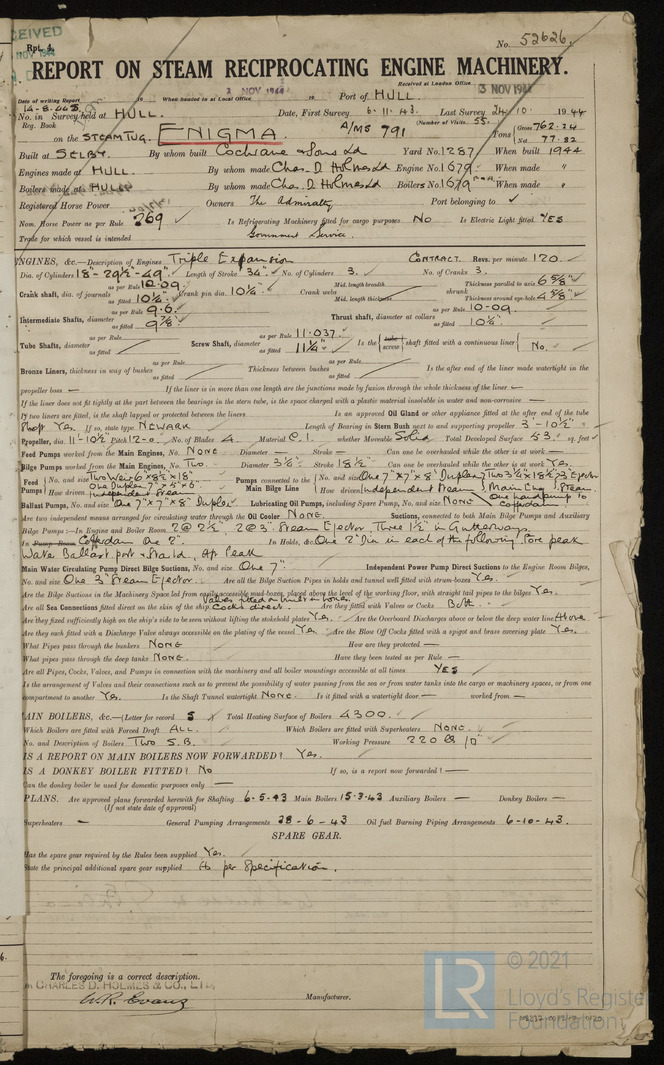 RECEIVED
Rpt. 4.
NOV 1944
No. 52626.
REPORT ON STEAM RECIPROCATING ENGINE MACHINERY.
Received at London Office 3 NOV 1944
Date of writing Report 19 When handed in at Local Office 2 NOV 1944 19 Port of HULL.
No. in Survey held at HULL. Date, First Survey 6.11.43 Last Survey 24.10.1944
Reg. Book (Number of Visits 55.)
on the STEAM TUG. ENIGMA. A/MS 791 Tons { Gross 762.24 Net 77.82
Built at SELBY. By whom built Cochrane & Sons Ld Yard No. 1287 When built 1944
Engines made at HULL. By whom made Chas. D. Holmes Ld Engine No. 1679 When made "
Boilers made at HULL By whom made Chas. D. Holmes Ld Boilers No. 1679 When made "
Registered Horse Power Owners The Admiralty Port belonging to ✓
Nom. Horse Power as per Rule 269 Is Refrigerating Machinery fitted for cargo purposes NO Is Electric Light fitted YES
Trade for which vessel is intended Government Service.
ENGINES, &c.—Description of Engines Triple Expansion CONTRACT. Revs. per minute 120.
Dia. of Cylinders 18"-29½"-49" Length of Stroke 34" No. of Cylinders 3. No. of Cranks 3.
Crank shaft, dia. of journals as per Rule 10.09. as fitted 10¼" Crank pin dia. 10¼" Crank webs Mid. length breadth Mid. length thickness shrunk Thickness parallel to axis 6⅝" Thickness around eye-hole 4⅝"
Intermediate Shafts, diameter as per Rule 9.6. as fitted 9⅞" Thrust shaft, diameter at collars as per Rule 10.09. as fitted 10¼"
Tube Shafts, diameter as per Rule as fitted Screw Shaft, diameter as per Rule 11.037. as fitted 11¼" Is the { tube screw } shaft fitted with a continuous liner { No.
Bronze Liners, thickness in way of bushes as per Rule as fitted Thickness between bushes as per Rule as fitted Is the after end of the liner made watertight in the
propeller boss — If the liner is in more than one length are the junctions made by fusion through the whole thickness of the liner —
If the liner does not fit tightly at the part between the bearings in the stern tube, is the space charged with a plastic material insoluble in water and non-corrosive —
If two liners are fitted, is the shaft lapped or protected between the liners Is an approved Oil Gland or other appliance fitted at the after end of the tube
shaft Yes. If so, state type NEWARK Length of Bearing in Stern Bush next to and supporting propeller 3'-10½"
Propeller, dia. 11'-10½" Pitch 12'-0 No. of Blades 4. Material C.I. whether Moveable Solid Total Developed Surface 53 sq. feet
Feed Pumps worked from the Main Engines, No. NONE Diameter — Stroke — Can one be overhauled while the other is at work —
Bilge Pumps worked from the Main Engines, No. Two. Diameter 3¾" Stroke 18½" Can one be overhauled while the other is at work Yes.
Feed Pumps { No. and size Two Weir 6"x8½"x18" One Duplex 7"x5"x6" How driven Independent Steam Pumps connected to the Main Bilge Line { No. and size One 7"x7"x8" Duplex, Two 3¾"x18½", 3" Ejector How driven Independent Steam, Main Eng, Steam.
Ballast Pumps, No. and size One 7"x7"x8" Duplex Lubricating Oil Pumps, including Spare Pump, No. and size NONE One hand pump to Cofferdam
Are two independent means arranged for circulating water through the Oil Cooler NONE. Suctions, connected to both Main Bilge Pumps and Auxiliary
Bilge Pumps :—In Engine and Boiler Room 2@2½", 2@3" Steam Ejector, Three 1½" in Gutterways.
In Pump Room Cofferdam One 2". In Holds, &c. One 2" Dia in each of the following: Fore peak
Wake Ballast port & Starbd, Aft Peak
Main Water Circulating Pump Direct Bilge Suctions, No. and size One 7" Independent Power Pump Direct Suctions to the Engine Room Bilges,
No. and size One 3" Steam Ejector. Are all the Bilge Suction Pipes in holds and tunnel well fitted with strum-boxes Yes.
Are the Bilge Suctions in the Machinery Space led from easily accessible mud-boxes, placed above the level of the working floor, with straight tail pipes to the bilges Yes.
Are all Sea Connections fitted direct on the skin of the ship Valves fitted on built in boxes. Cocks direct. Are they fitted with Valves or Cocks Both.
Are they fixed sufficiently high on the ship's side to be seen without lifting the stokehold plates Yes. Are the Overboard Discharges above or below the deep water line Above
Are they each fitted with a Discharge Valve always accessible on the plating of the vessel Yes Are the Blow Off Cocks fitted with a spigot and brass covering plate Yes.
What Pipes pass through the bunkers NONE How are they protected —
What pipes pass through the deep tanks NONE. Have they been tested as per Rule —
Are all Pipes, Cocks, Valves, and Pumps in connection with the machinery and all boiler mountings accessible at all times YES
Is the arrangement of Valves and their connections such as to prevent the possibility of water passing from the sea or from water tanks into the cargo or machinery spaces, or from one
compartment to another Yes. Is the Shaft Tunnel watertight NONE. Is it fitted with a watertight door — worked from —
MAIN BOILERS, &c.—(Letter for record S ) Total Heating Surface of Boilers 4300.
Which Boilers are fitted with Forced Draft ALL. Which Boilers are fitted with Superheaters NONE.
No. and Description of Boilers TWO S.B. Working Pressure 220 lb/□"
IS A REPORT ON MAIN BOILERS NOW FORWARDED? Yes.
IS A DONKEY BOILER FITTED? No If so, is a report now forwarded? —
Can the donkey boiler be used for domestic purposes only —
PLANS. Are approved plans forwarded herewith for Shafting 6.5.43 Main Boilers 15.3.43 Auxiliary Boilers — Donkey Boilers —
(If not state date of approval)
Superheaters — General Pumping Arrangements 28-6-43 Oil fuel Burning Piping Arrangements 6-10-43.
SPARE GEAR.
Has the spare gear required by the Rules been supplied Yes.
State the principal additional spare gear supplied As per Specification.
The foregoing is a correct description.
CHARLES D. HOLMES & CO., LTD.
W.R. Evans Manufacturer.
© 2021
LR
Lloyd's Register
Foundation